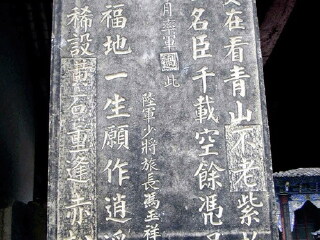 在看青山不老紫
名臣千載空餘憑
月率軍過此
陸軍少將旅長馮玉祥
福地一生願作逍遙
稀設黃石重逢赤